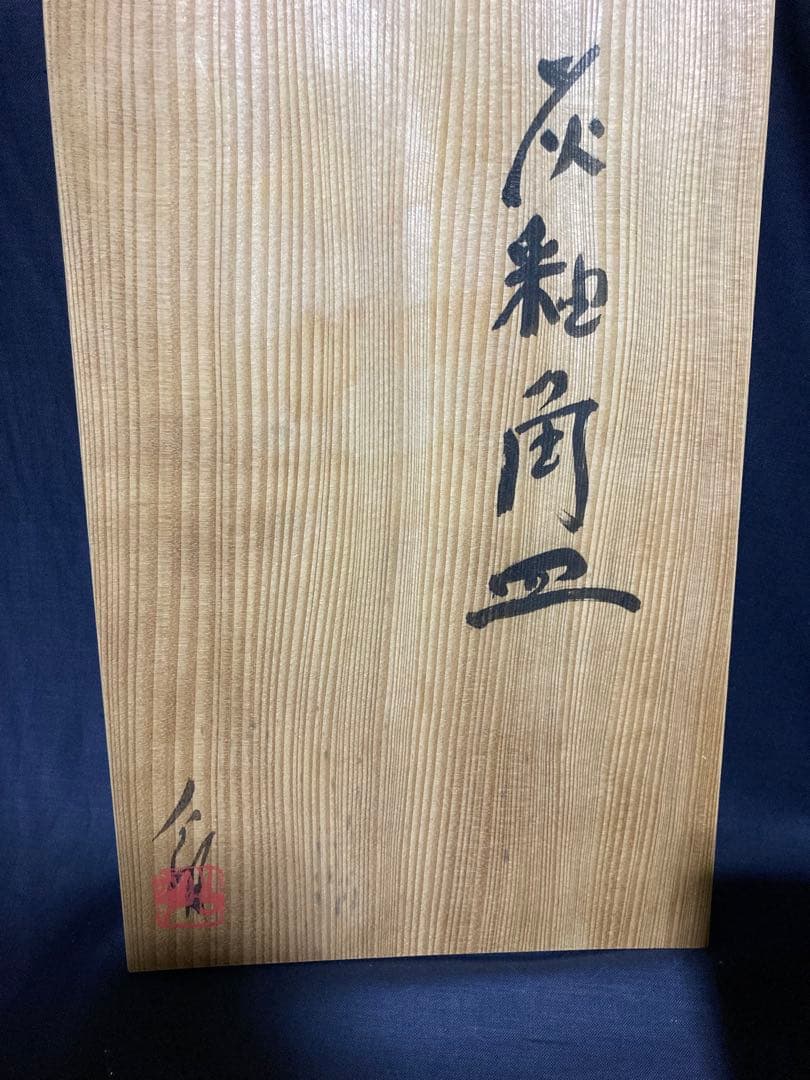 灰釉角皿